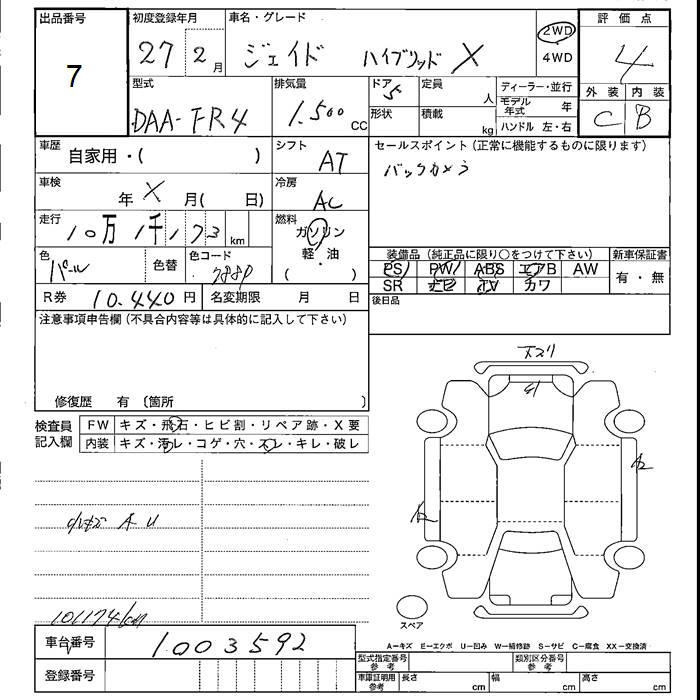 出品番号
7
初度登録年月
27 2 月
車名・グレード
ジェイド ハイブリッド X
2WD
4WD
評価点
4
外装 内装
C B
型式
DAA-FR4
排気量
1.500 CC
ドア
5
形状
定員
人
積載
kg
ディーラー・並行
モデル年式 年
ハンドル 左・右
車歴
自家用・( )
シフト
AT
セールスポイント(正常に機能するものに限ります)
バックカメラ
車検
年 X 月( 日)
冷房
AC
走行
10万 1千 173 km
燃料
ガソリン
軽・油
( )
色
パール
色替
色コード
装備品(純正品に限り○をつけて下さい)
PS PW ABS エアB AW
SR ナビ TV カワ
新車保証書
有・無
R券 10.440 円
名変期限 月 日
後日品
注意事項申告欄(不具合内容等は具体的に記入して下さい)
修復歴 有 〔箇所 〕
検査員記入欄
FW キズ・飛石・ヒビ割・リペア跡・X要
内装 キズ・汚レ・コゲ・穴・スレ・キレ・破レ
小キズ A U
101174km
下スリ
A2
A2
スペア
A−キズ E−エクボ U−凹み W−補修跡 S−サビ C−腐食 XX−交換済
車台番号 1003592
登録番号
型式指定番号 参考
類別区分番号 参考
車庫証明用 参考
長さ cm
幅 cm
高さ cm